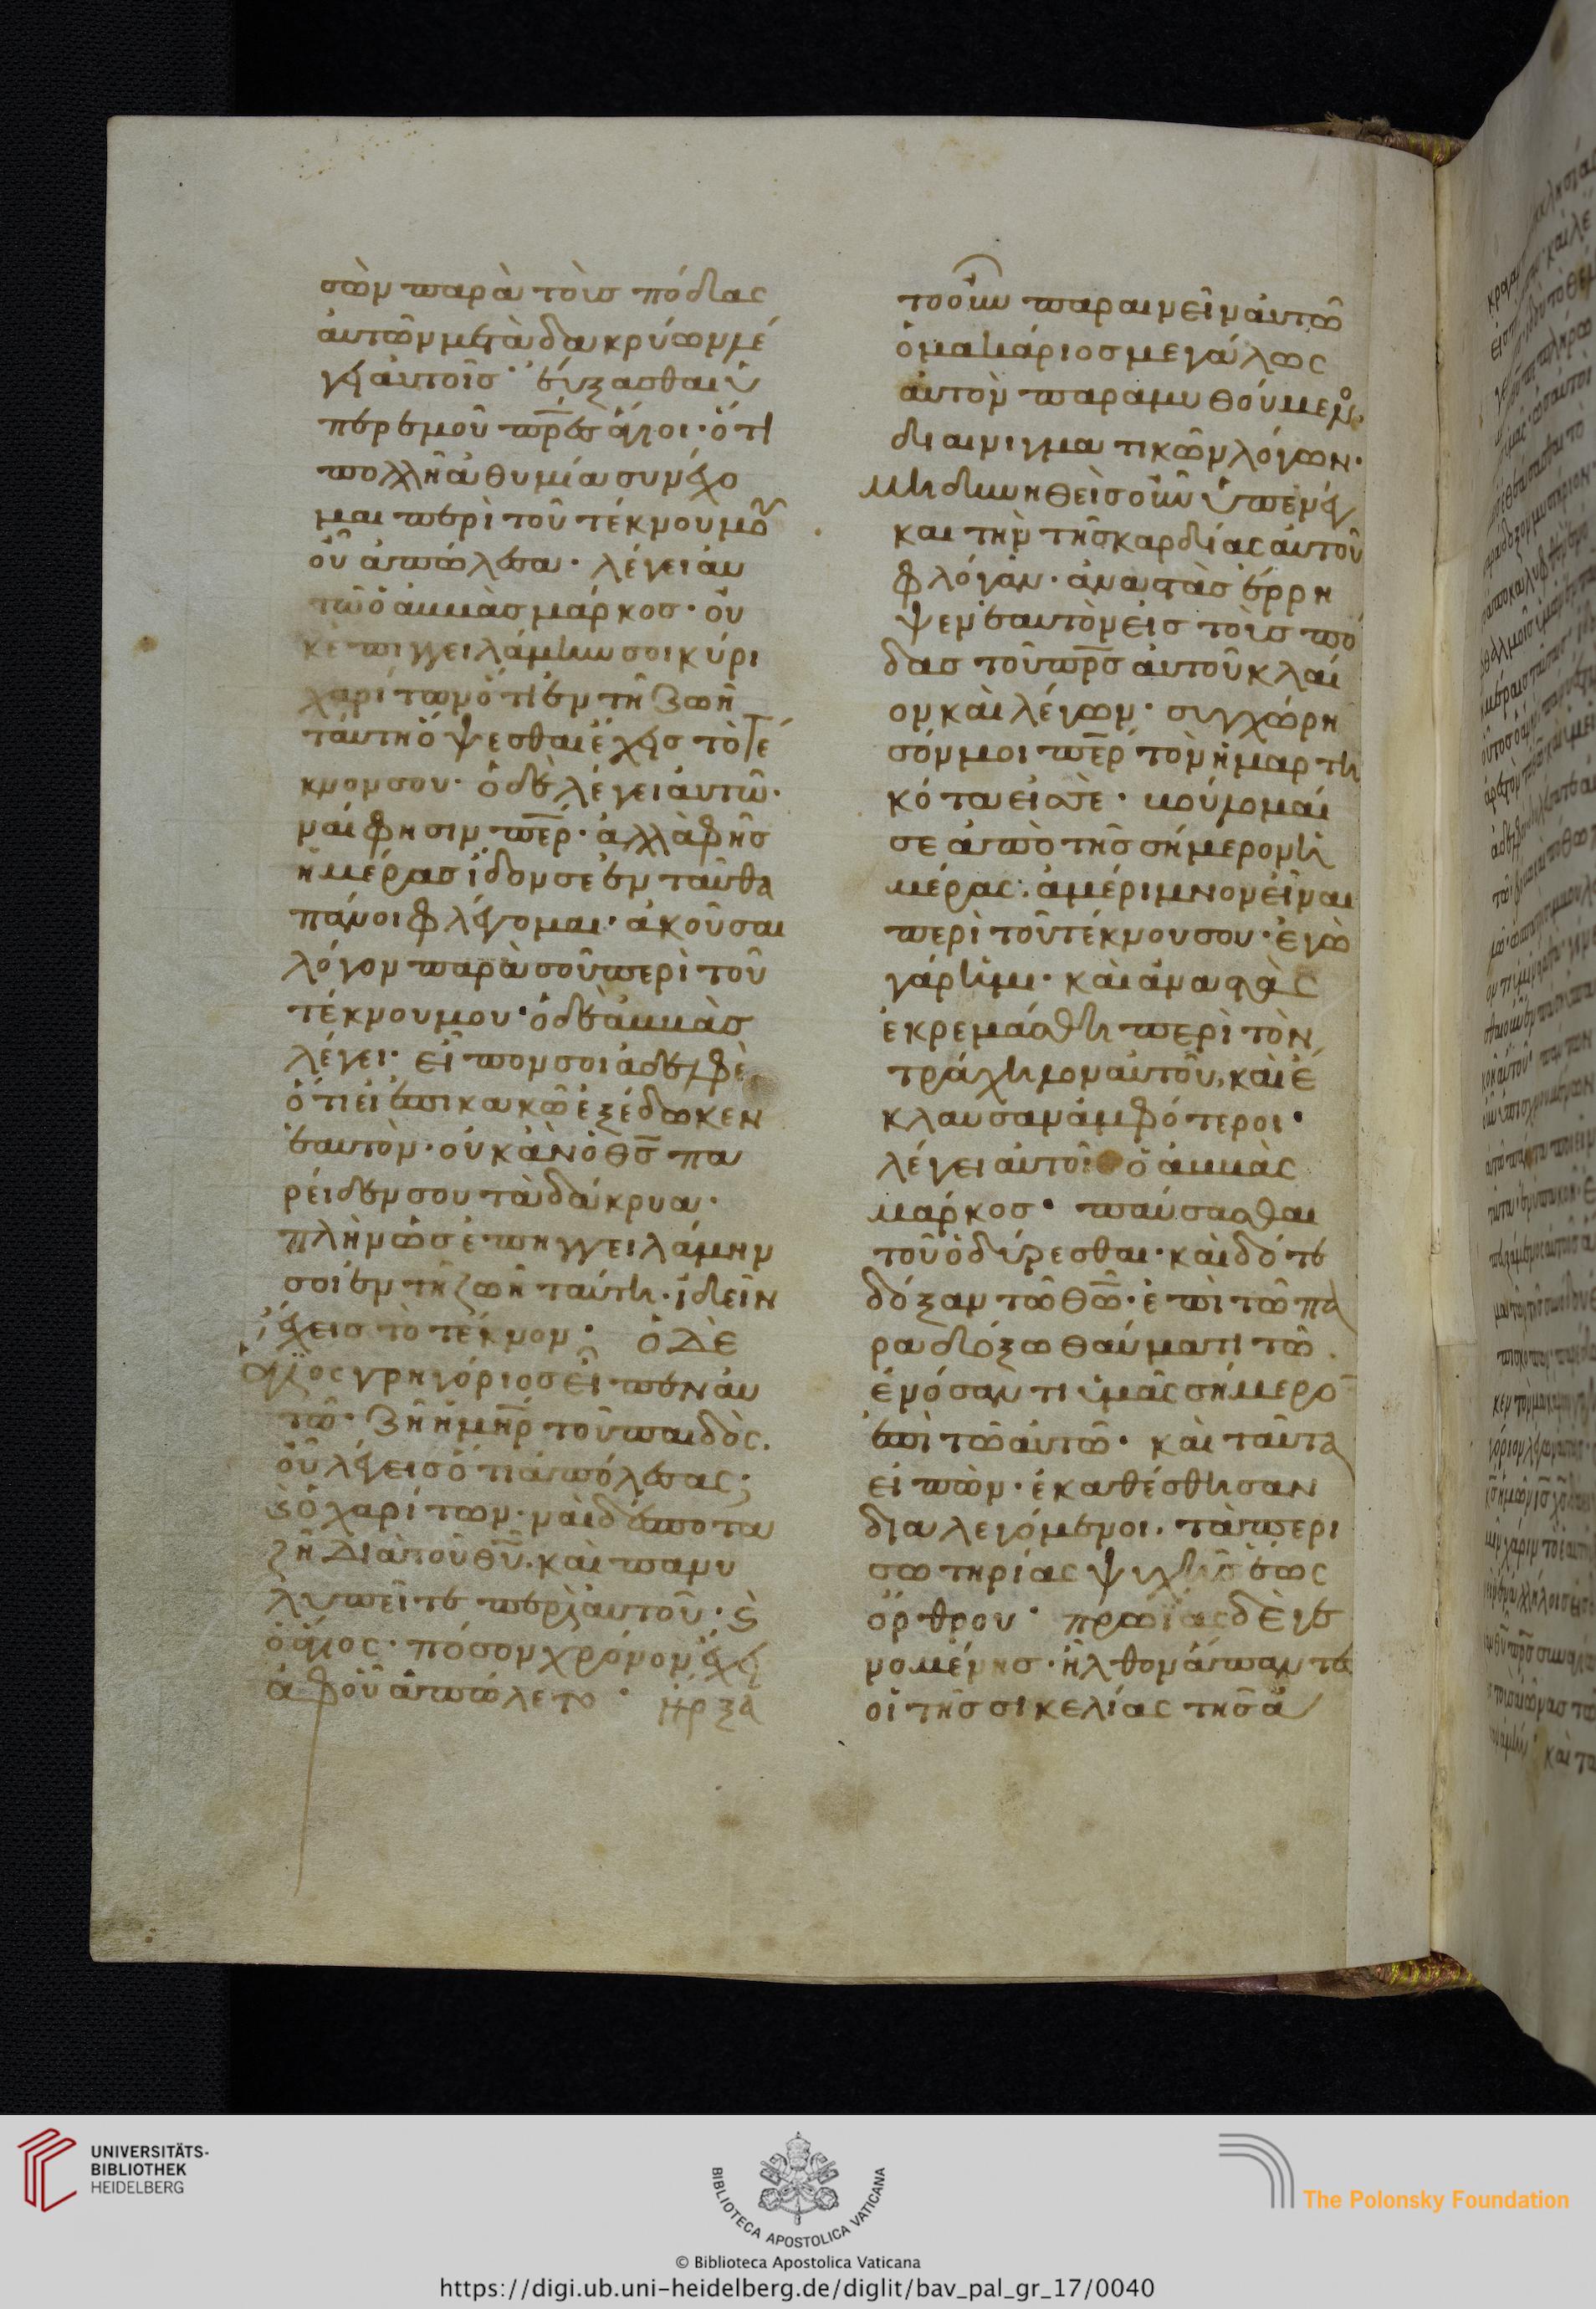 σὼν παρὰ τοὺσ πόδας
ἀυτῶν μετὰ δακρύων λέ
γει ἀυτοῖσ· ἐύξασθαι ὑ
πὲρ ἐμοῦ πρ̅ες ἅγιοι· ὅτι
πολλῆ ἀθυμία συνέχο
μαι περὶ τοῦ τέκνου μου
οὗ ἀπώλεσα· λέγει ἀυ
τῶ ὁ ἀμμὰσ μάρκοσ· οὐ
κ ἐπιγγειλάμην σοι κύρι
χαρίτων ὅτι ἐν τῆ ζωῆ
ταύτη ὄψεσθαι ἔχεισ τὸ τέ
κνον σου· ὁ δὲ λέγει ἀυτῶ·
ναί φησιν πε̅ρ· ἀλλὰ ἀφ ἧσ
ἡμέρασ ἰδον σε ἐνταῦθα
πάνοι φλέγομαι· ἀκοῦσαι
λόγον παρὰ σοῦ περὶ τοῦ
τέκνου μου· ὁ δὲ ἀμμὰσ
λέγει· εἶπον σοι ἀδελφὲ
ὅτι εἰ ἐπι κακῶ ἐξέδωκεν
ἑαυτὸν· οὐκ ἂν ὁ θσ̅ πα
ρείδεν σου τὰ δάκρυα·
πλὴν ὧσ ἐπηγγειλάμην
σοι ἐν τῆ ζωῆ ταύτη· ἰδεῖν
ἔχεισ τὸ τέκνον· ὁ δὲ
ἅγιος γρηγόριοσ εἶπεν ἀυ
τῶ· ζῆ ἡ μη̅ρ τοῦ παιδὸς·
οὗ λέγεισ ὅτι ἀπόλεσας;
ϗ ὁ χαρίτων· ναὶ δέσποτα
ζῆ διὰ τοῦ θυ̅· καὶ πανυ
λυπεῖτε περὶ αὐτοῦ· ϗ
ὁ ἅγιος· πόσον χρόνον ἔχει
ἀφ οὗ ἀπώλετο· ἤρξα
το οὖν παραινεῖν ἀυτῶ
ὁ μακάριοσ μεγάλως
ἀυτὸν παραμυθούμενος
δι αινιγματικῶν λόγων·
μὴ δυνηθεὶσ οὖν ὑπενεγ
και τὴν τῆσ καρδίας ἀυτοῦ
φλόγαν· ἀναστὰσ ἔρρη
ψεν ἑαυτὸν εἰσ τοὺσ πό
δασ τοῦ πρ̅σ ἀυτοῦ κλαί
ον καὶ λέγων· συγχώρη
σόν μοι πε̅ρ τὸν ἡμαρτη
κότα εἰσ σὲ· κούρομαί
σε ἀπὸ τῆσ σήμερον ἡ
μέρας· ἀμέριμνον εἶναι
περὶ τοῦ τέκνου σου· ἐγὼ
γάρ ἠμι· καὶ ἀναστὰς
ἐκρεμάσθη περὶ τὸν
τράχηλον ἀυτοῦ, καὶ ἔ
κλαυσαν ἀμφότεροι·
λέγει ἀυτοῖσ ὁ ἀμμὰς
μαρκοσ· παύσασθαι
τοῦ ὀδύρεσθαι· καὶ δότε
δόξαν τῶ θω̅· ἐπὶ τῶ πα
ραδόξω θαύματι τῶ
ἑνόσαντι ὑμᾶς σήμερον
ἐπὶ τῶ ἀυτῶ· καὶ ταῦτα
εἰπὼν· ἐκαθέσθησαν
διαλεγόμενοι· τὰ περι
σωτηρίας ψυχῆσ ἕως
ὄρθρου· πρωΐας δὲ γε
νομένησ· ἦλθον ἅπαντε
οἱ τῆσ σικελίας τῆσ ἀ
UNIVERSITÄTS-
BIBLIOTHEK
HEIDELBERG
BIBLIOTECA APOSTOLICA VATICANA
The Polonsky Foundation
© Biblioteca Apostolica Vaticana
https://digi.ub.uni-heidelberg.de/diglit/bav_pal_gr_17/0040